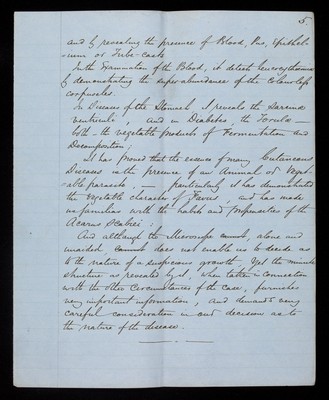 5
and by revealing the presence of Blood, Pus, Epithel-
-ium or Tube-casts
In the Examination of the Blood, it detects Leucocythaemia
by demonstrating the superabundance of the Colourless
corpuscles.
In Diseases of the Stomach it reveals the Sarcina
ventriculi, and in Diabetes, the Torula —
both the vegetable products of Fermentation and
Decomposition;
It has proved that the essence of many Cutaneous
Diseases is the presence of an Animal or Veget-
-able parasite, — particularly it has demonstrated
the vegetable character of Favus, and has made
us familiar with the habits and propensities of the
Acarus Scabiei:
And although the Microscope cannot, alone and
unaided cannot does not enable us to decide as
to the nature of a suspicious growth, yet the minute
structure as revealed by it, when taken in connection
with the other Circumstances of the case, furnishes
very important information, and demands very
careful consideration in our decision as to
the nature of the disease.